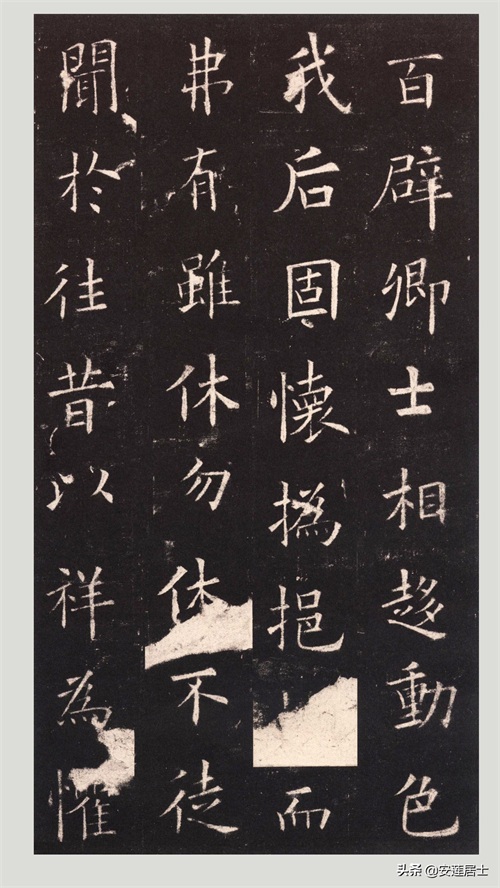 百辟卿士相趍動色
我后固懷撝挹而
弗有雖休勿休不徒
聞於徃昔以祥為懼
头条 @安莲居士